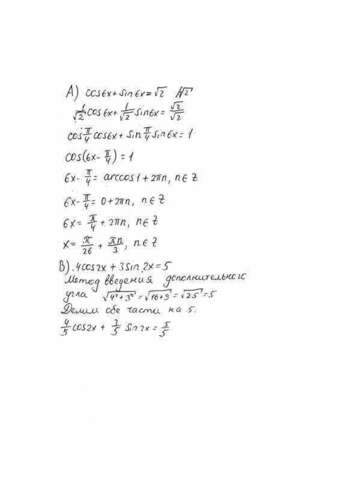 А) cos6x + sin6x = √2 |:√2
1/√2 cos6x + 1/√2 sin6x = √2/√2
cos π/4 cos6x + sin π/4 sin6x = 1
cos(6x - π/4) = 1
6x - π/4 = arccos1 + 2πn, n∈Z
6x - π/4 = 0 + 2πn, n∈Z
6x = π/4 + 2πn, n∈Z
x = π/26 + πn/3, n∈Z
В). 4cos2x + 3sin2x = 5
Метод введения дополнительного
угла √4²+3² = √16+9 = √25 = 5
Делим обе части на 5.
4/5 cos2x + 3/5 sin2x = 5/5